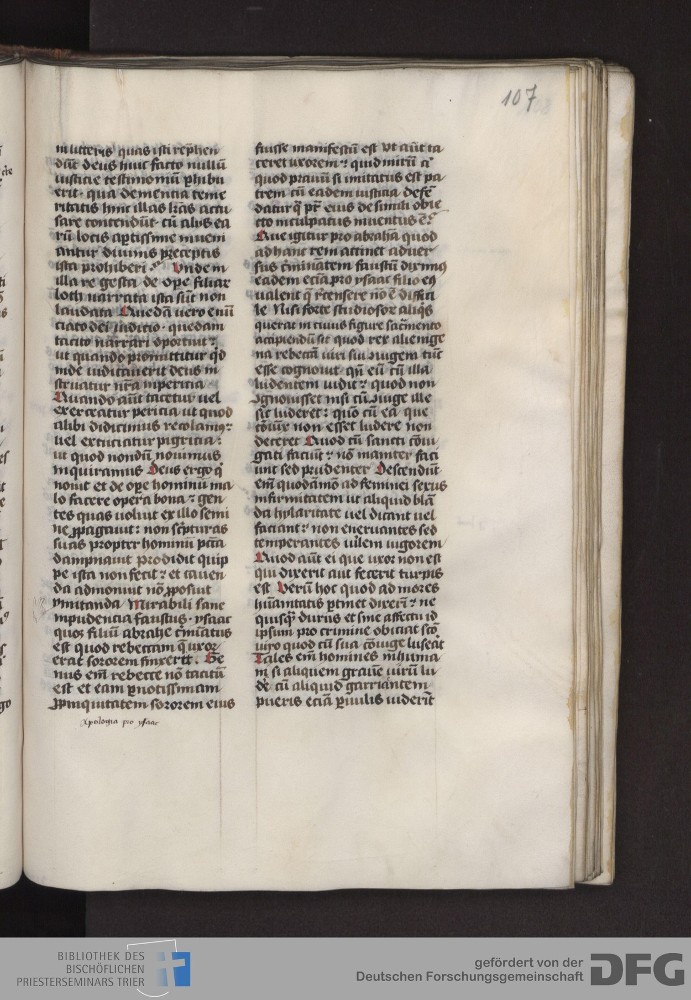 107
in litteris quas isti rep̄hen
dūt deus huic facto nullū
iusticie testimoniū ꝑhibu
erit· qua dementia teme
ritatis hinc illas lr̄as accu
sare contendūt· cū alijs ea
rū locis aptissime inueni
antur diuinis preceptis
ista prohiberi Vnde in
illa re gesta de oꝑe filiaꝝ
loth narrata ista sūt non
laudata Quedā uero enū
ciato dei iuditio· quedam
tacito narrari oportuit ⁊
ut quando promittitur qd̓
inde iudicauerit deus in
struatur nr̄a inpericia
Quando aūt tacetur uel
exerceatur pericia ut quod
alibi didicimus recolamꝯ
uel excuciatur pigricia
ut quod nondū nouimus
inquiramus Deus ergo q̓
nouit et de oꝑe hominū ma
lo facere opera bona ⁊ gen
tes quas uoluit ex illo semi
ne ꝓpagauit: non scripturas
suas propter hominū pctā
dampnauit Prodidit quip
pe ista non fecit ⁊ et cauen
da admonuit nō ꝓposuit
ymitanda Mirabili sane
inpudencia faustus· ysaac
quoꝫ filiū abrahe cm̄inatus
est quod rebeccam q̄ uxor
erat sororem finxerit· Ge
nus em̄ rebecce nō tacitū
est et eam ꝑnotissimam
ꝓpinquitatem sororem eius
Apologia pro ysaac
fuisse manifestū est Vt aūt ta
ceret uxorem ⁊ quid mirū aut
quod prauū si imitatus est pa
trem cū eadem iusticia defē
datur q̄ pr̄ eius de simili obie
cto inculpatus inuentus ē
Que igitur pro abraha quod
ad hanc rem attinet aduer
sus criminatem faustū diximꝯ
eadem eciā pro ysaac filio eiꝯ
ualent q̄ r̓censere nō ē diffici
le Nisi forte studiosoꝝ aliqͥs
querat in cuius figure sacͣmento
accipiendū sit quod rex alienige
na rebeccā uiri sui ꝯiugem tūc
esse cognouit qn̄ eū cū illa
ludentem uidit ⁊ quod non
ꝯgnouisset nisi cū ꝯiuge ille
sic luderet: quō cū ea que
cōiūx non esset ludere non
deceret Quod cū sancti cōiu
gati faciūt ⁊ nō inaniter faci
unt sed prudenter Descendūt
em̄ quodāmō ad feminei sexus
infirmitatem ut aliquid blā
da hylaritate uel dicant uel
faciant ⁊ non eneruantes sed
temperantes uilem uigorem
Quod aūt ei que uxor non est
qui dixerit aut fecerit turpis
est Verū hoc quod ad mores
hūanitatis ꝑtinet dixerī ⁊ ne
quisꝗ̄ durus et sine affectu id
ipsum pro crimine obiciat scō
uiro quod cū sua cōiuge luserit
Tales em̄ homines inhuma
ni si aliquem grauē uirū lu
dē cū aliquid garriantem
pueris eciā ꝑuulis uiderīt
BIBLIOTHEK DES
BISCHÖFLICHEN
PRIESTERSEMINARS TRIER
gefördert von der
Deutschen Forschungsgemeinschaft
DFG